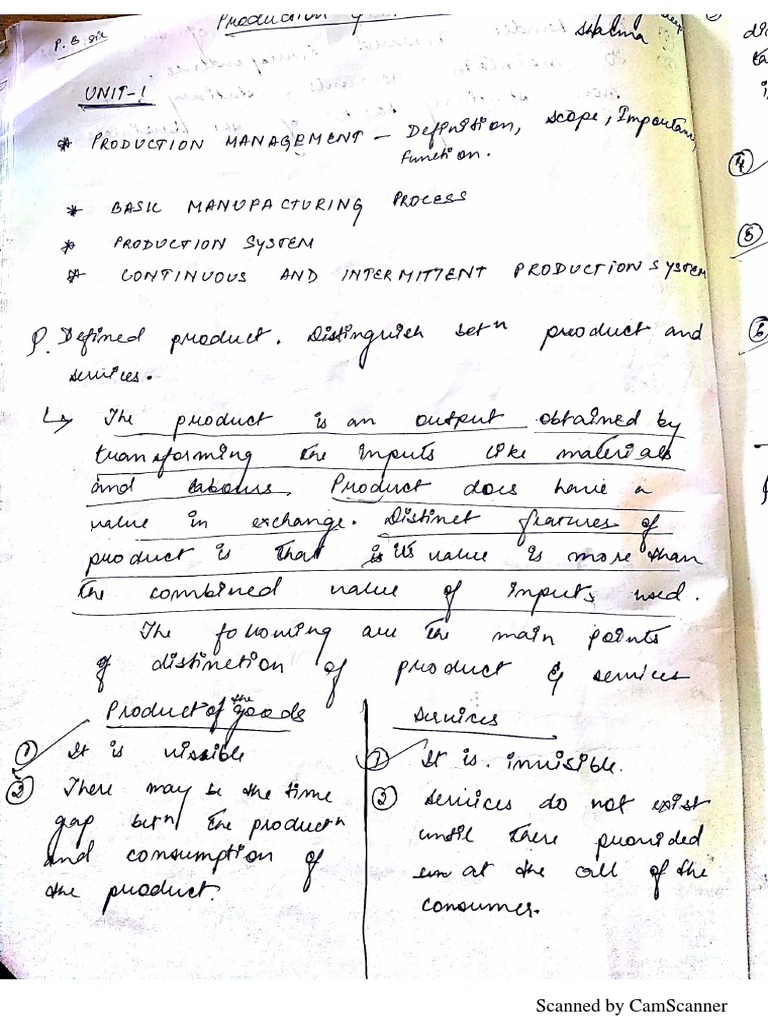 P. B. sir
Production
Sharma
UNIT-1
* PRODUCTION MANAGEMENT – Definition, Scope, Importance,
Function.
* BASIC MANUFACTURING PROCESS
* PRODUCTION SYSTEM
* CONTINUOUS AND INTERMITTENT PRODUCTION SYSTEM
Q. Defined product. Distinguish betⁿ product and
services.
↳ The product is an output obtained by
transforming the inputs like materials
and labours. Product does have a
value in exchange. Distinct features of
product is that its value is more than
the combined value of inputs used.
The following are the main points
of distinction of product & services
Product of the goods
① It is vissible
② There may be the time
gap betⁿ the productⁿ
and consumption of
the product.
Services
① It is invisible.
② Services do not exist
until there provided
at the call of the
consumer.
④
⑤
⑥
Scanned by CamScanner